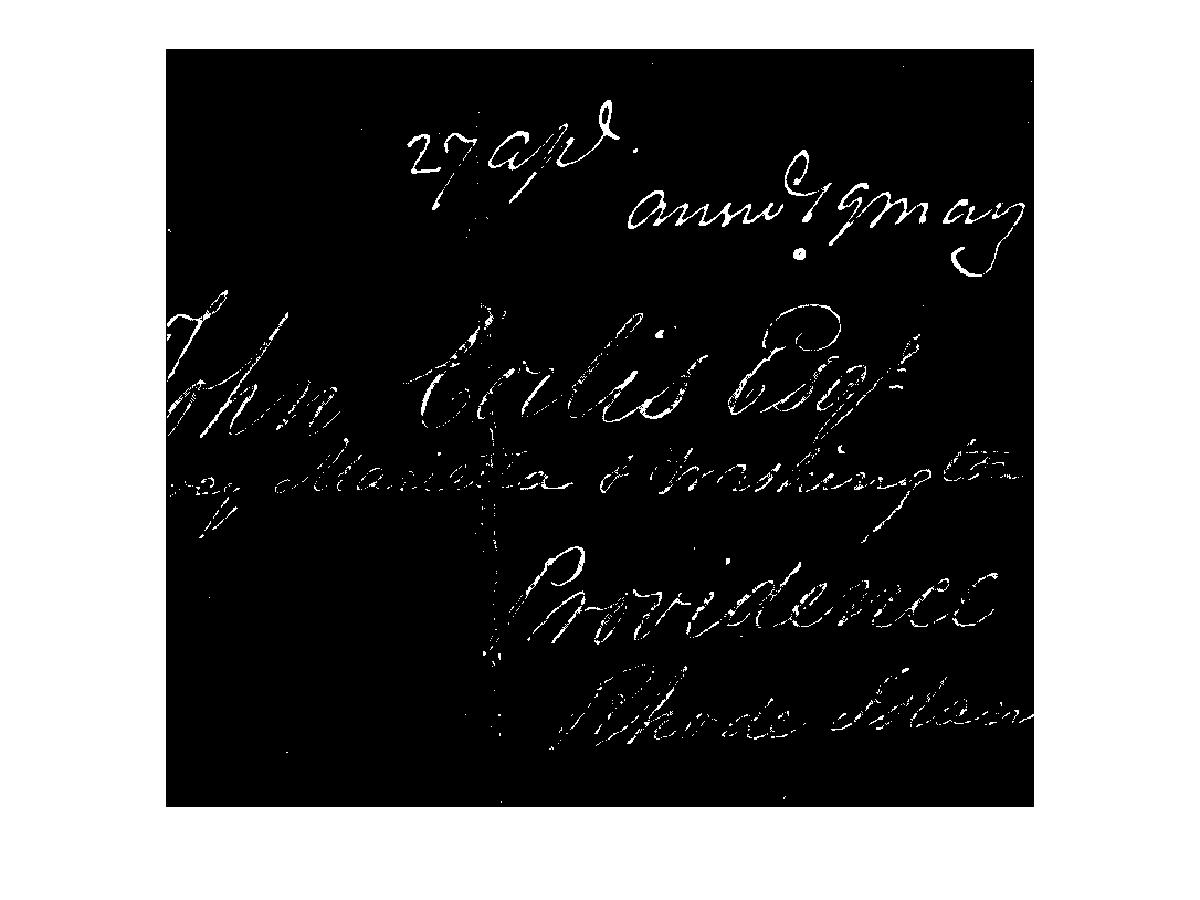 27 apl.
answd 9 may
John Corlis Esqr
way Marietta & Washington
Providence
Rhode Islan